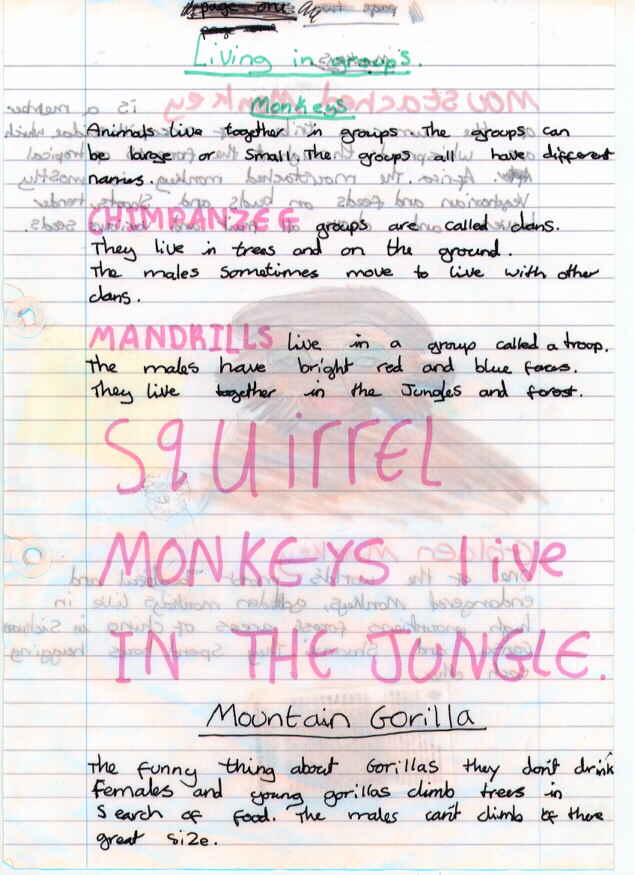 page one
page one
Living in groups.
Monkeys
Animals live together in groups. The groups can
be large or small. The groups all have different
names.
CHIMPANZEE groups are called clans.
They live in trees and on the ground.
The males sometimes move to live with other
clans.
MANDRILLS live in a group called a troop.
The males have bright red and blue faces.
They live together in the Jungles and forest.
SqUirrEL
MONKEYS live
IN THE JUNGLE.
Mountain Gorilla
The funny thing about Gorillas they don't drink
Females and young gorillas climb trees in
Search of food. The males can't climb of there
great size.